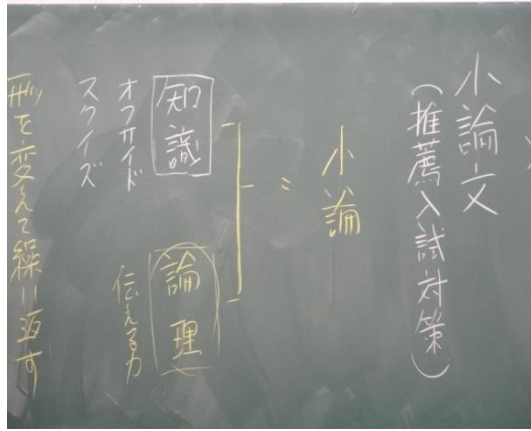 小論文
(推薦入試対策)
小論
=
知識
論理
オフサイド
スクイズ
伝える力
形を変えて繰り返す